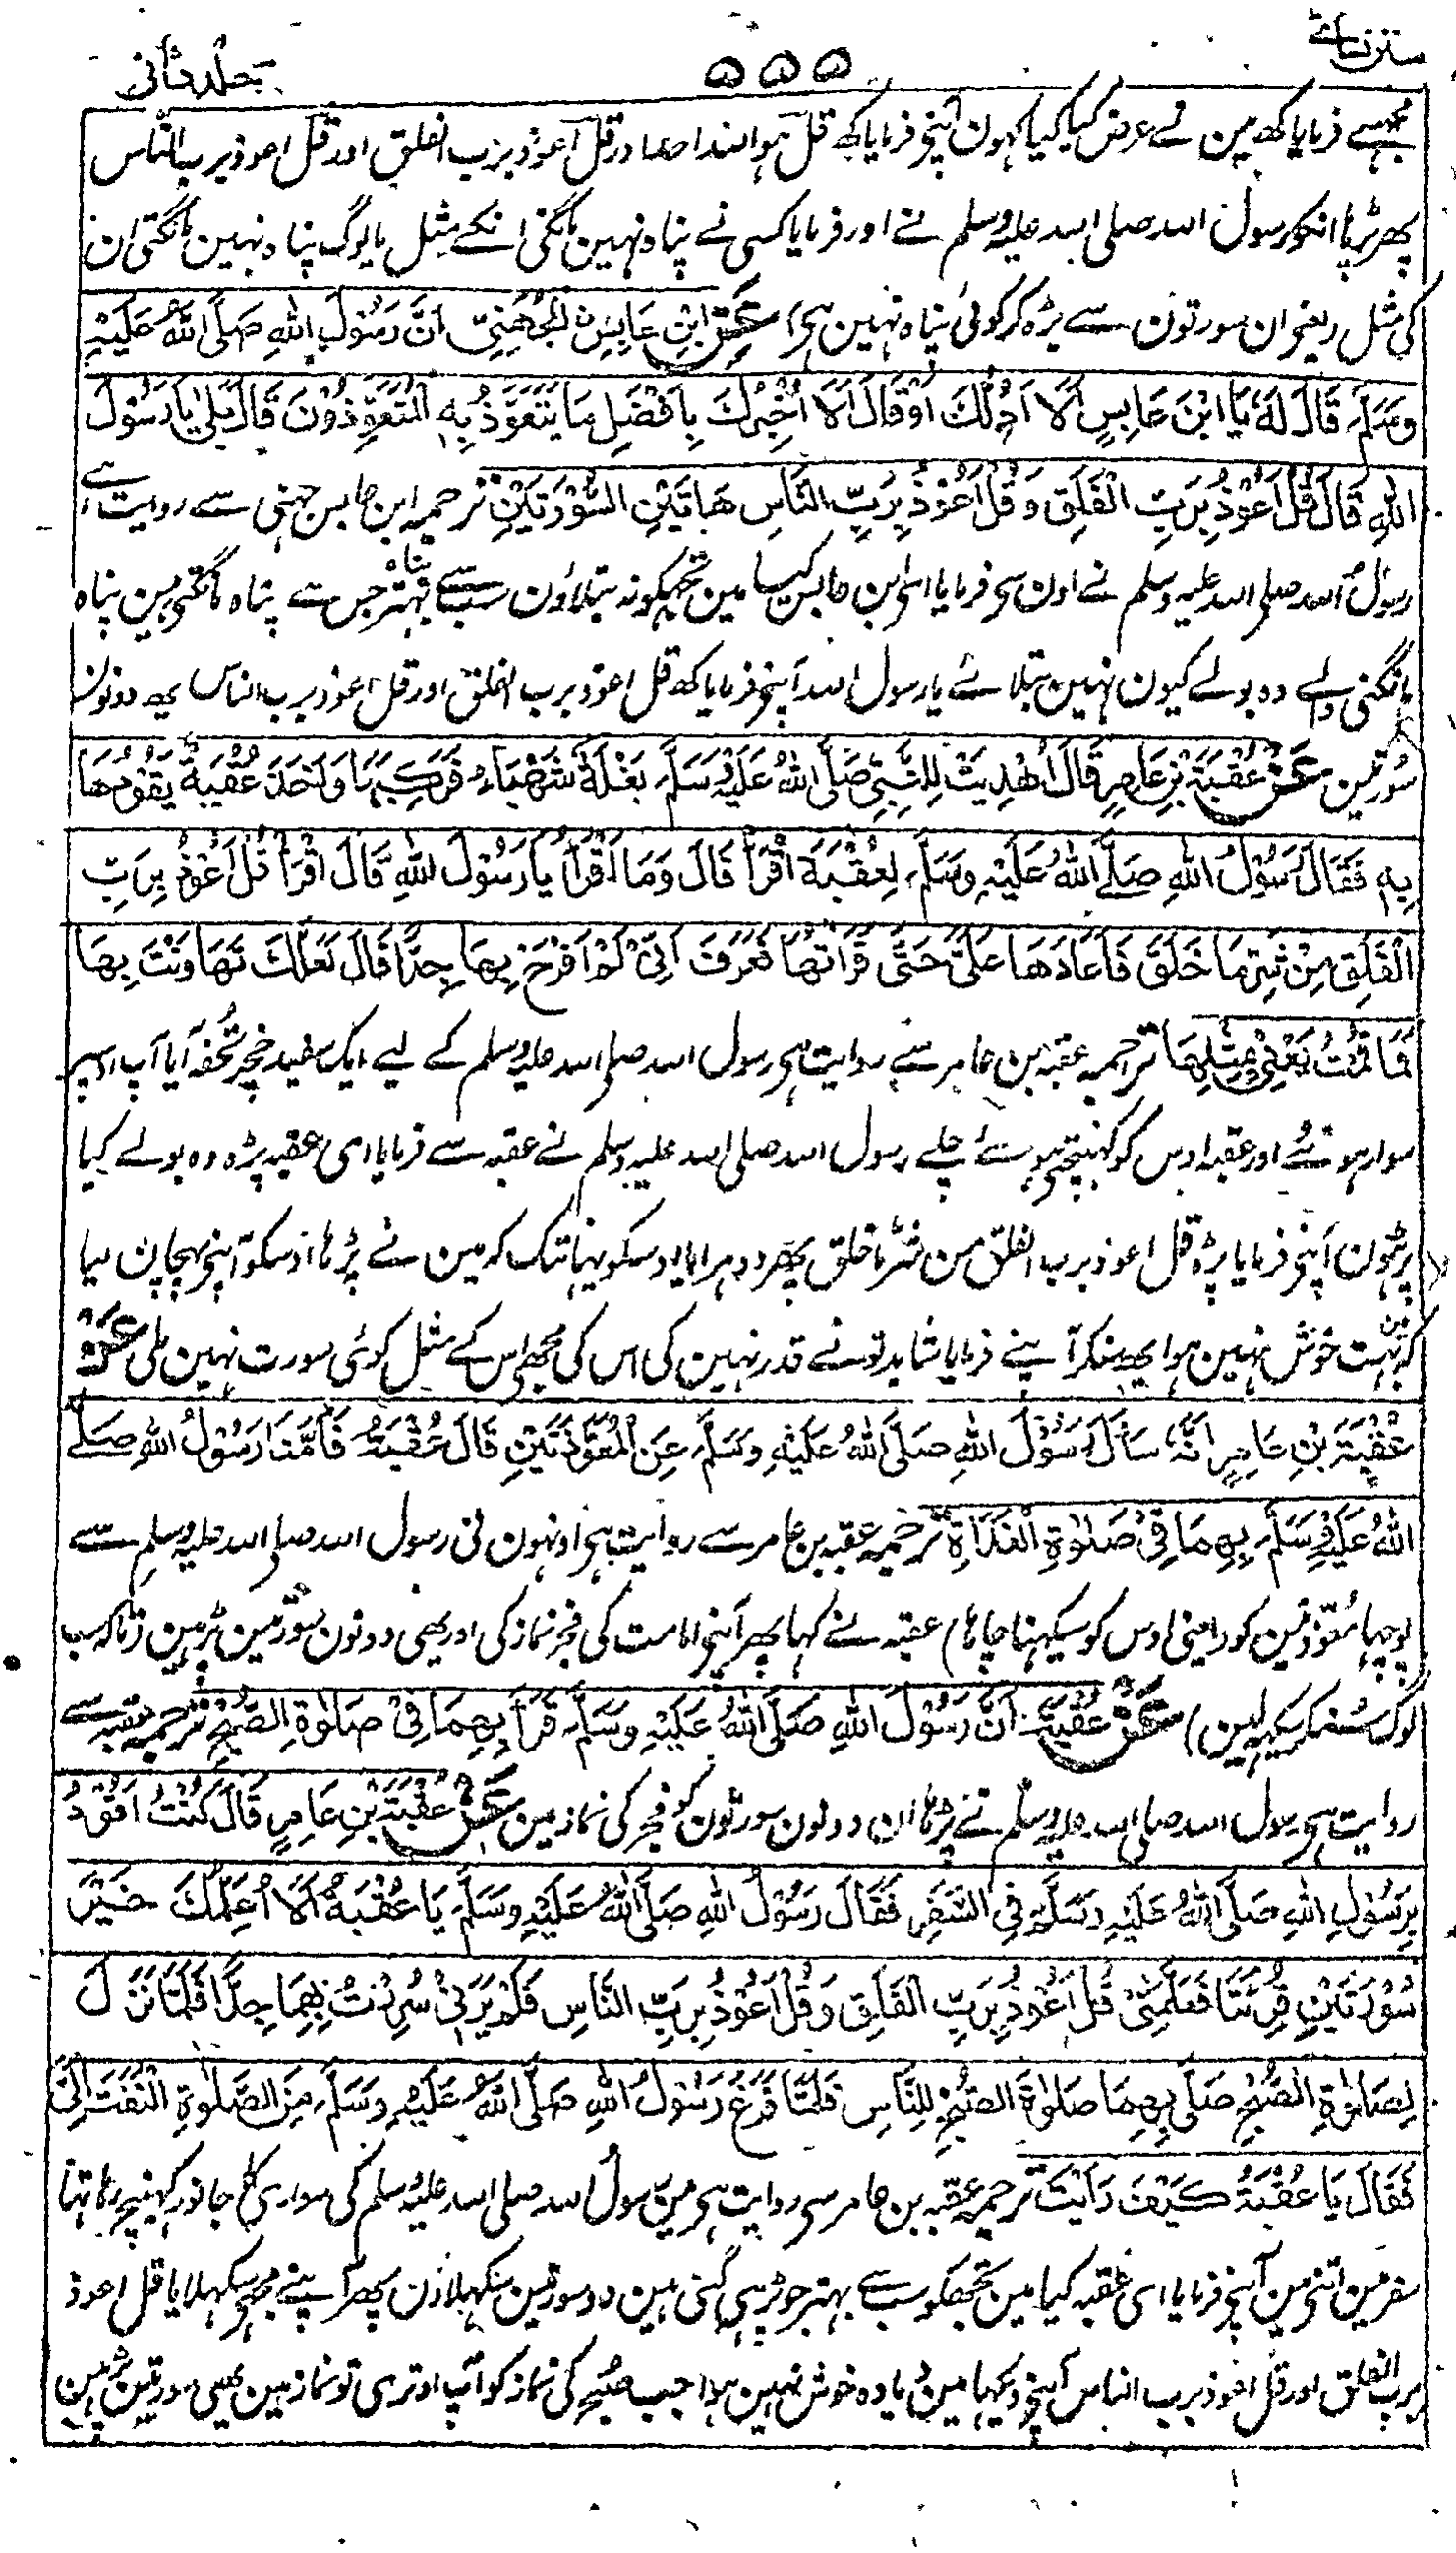 سنن نسائے
۵۵۵
جلد ثانی
مجہسے فرمایا کھہ مین نے عرض کیا کیا کہون آپنے فرمایا کھہ قل ہو اللہ احد اور قل اعوذ برب الفلق اور قل اعوذ برب الناس
پھر پڑہا انکو رسول اللہ صلی اللہ علیہ وسلم نے اور فرمایا کسی نے پناہ نہین مانگی انکے مثل یا لوگ پناہ نہین مانگتی ان
کی مثل (یعنی ان سورتون سے بڑہ کر کوئی پناہ نہین ہی) عَنِ ابْنِ عَابِسٍ الْجُهَنِيِّ اَنَّ رَسُوْلَ اللهِ صَلَّى اللهُ عَلَيْهِ
وَسَلَّمَ قَالَ لَهٗ يَا ابْنَ عَابِسٍ اَلَا اَدُلُّكَ اَوْ قَالَ اَلَا اُخْبِرُكَ بِاَفْضَلِ مَا يَتَعَوَّذُ بِهِ الْمُتَعَوِّذُوْنَ قَالَ بَلٰى يَا رَسُوْلَ
اللهِ قَالَ قُلْ اَعُوْذُ بِرَبِّ الْفَلَقِ وَقُلْ اَعُوْذُ بِرَبِّ النَّاسِ هَاتَيْنِ السُّوْرَتَيْنِ ترجمہ ابن عابس جہنی سے روایت ہے
رسول اللہ صلی اللہ علیہ وسلم نے اون سے فرمایا ای ابن عابس کیا مین تجہکو نہ بتلاؤن سب سے بہتر پناہ جس سے پناہ مانگتی ہین پناہ
مانگنی والے وہ بولے کیون نہین بتلائے یا رسول اللہ آپنے فرمایا کھہ قل اعوذ برب الفلق اور قل اعوذ برب الناس یھہ دونون
سورتین عَنْ عُقْبَةَ بْنِ عَامِرٍ قَالَ اُهْدِيَتْ لِلنَّبِيِّ صَلَّى اللهُ عَلَيْهِ وَسَلَّمَ بَغْلَةٌ شَهْبَاءُ فَرَكِبَهَا وَاَخَذَ عُقْبَةُ يَقُوْدُهَا
بِهٖ فَقَالَ رَسُوْلُ اللهِ صَلَّى اللهُ عَلَيْهِ وَسَلَّمَ لِعُقْبَةَ اقْرَأْ قَالَ وَمَا اَقْرَأُ يَا رَسُوْلَ اللهِ قَالَ اقْرَأْ قُلْ اَعُوْذُ بِرَبِّ
الْفَلَقِ مِنْ شَرِّ مَا خَلَقَ فَاَعَادَهَا عَلَيَّ حَتّٰى قَرَأْتُهَا فَعَرَفَ اَنِّيْ لَمْ اَفْرَحْ بِهَا جِدًّا قَالَ لَعَلَّكَ تَهَاوَنْتَ بِهَا
فَمَا قُمْتُ يَعْنِيْ بِمِثْلِهَا ترجمہ عقبہ بن عامر سے روایت ہی رسول اللہ صلی اللہ علیہ وسلم کے لیے ایک سفید خچر تحفہ آیا آپ اوسپر
سوار ہوئے اور عقبہ اوس کو کہینچتی ہوئے چلے رسول اللہ صلی اللہ علیہ وسلم نے عقبہ سے فرمایا ای عقبہ پڑہ وہ بولے کیا
پڑہون آپنے فرمایا پڑہ قل اعوذ برب الفلق من شر ما خلق پھر دوہرایا اوسکو یہانتک کہ مین نے پڑہا اوسکو آپنے پہچان لیا
کہ مین بہت خوش نہین ہوا یھہ سنکر آپنے فرمایا شاید تونے قدر نہین کی اس کی مجھی اس کے مثل کوئی سورت نہین ملی عَنْ
عُقْبَةَ بْنِ عَامِرٍ اَنَّهٗ سَأَلَ رَسُوْلَ اللهِ صَلَّى اللهُ عَلَيْهِ وَسَلَّمَ عَنِ الْمُعَوِّذَتَيْنِ قَالَ عُقْبَةُ فَاَمَّنَا رَسُوْلُ اللهِ صَلَّى
اللهُ عَلَيْهِ وَسَلَّمَ بِهِمَا فِيْ صَلٰوةِ الْغَدَاةِ ترجمہ عقبہ بن عامر سے روایت ہی اونہون نی رسول اللہ صلی اللہ علیہ وسلم سے
پوچہا معوذتین کو (یعنی اوس کو سیکہنا چاہا) عقبہ نے کہا پھر آپنے امامت کی فجر نماز کی اور یھی دونون سورتین پڑہین (تاکہ سب
لوگ سنکر سیکہہ لین) عَنْ عُقْبَةَ اَنَّ رَسُوْلَ اللهِ صَلَّى اللهُ عَلَيْهِ وَسَلَّمَ قَرَأَ بِهِمَا فِيْ صَلٰوةِ الصُّبْحِ ترجمہ عقبہ سے
روایت ہی رسول اللہ صلی اللہ علیہ وسلم نے پڑہا ان دونون سورتون کو فجر کی نماز مین عَنْ عُقْبَةَ بْنِ عَامِرٍ قَالَ كُنْتُ اَقُوْدُ
بِرَسُوْلِ اللهِ صَلَّى اللهُ عَلَيْهِ وَسَلَّمَ فِي السَّفَرِ فَقَالَ رَسُوْلُ اللهِ صَلَّى اللهُ عَلَيْهِ وَسَلَّمَ يَا عُقْبَةُ اَلَا اُعَلِّمُكَ خَيْرَ
سُوْرَتَيْنِ قُرِئَتَا فَعَلَّمَنِيْ قُلْ اَعُوْذُ بِرَبِّ الْفَلَقِ وَقُلْ اَعُوْذُ بِرَبِّ النَّاسِ فَلَمْ يَرَنِيْ سُرِرْتُ بِهِمَا جِدًّا فَلَمَّا نَزَلَ
لِصَلٰوةِ الصُّبْحِ صَلّٰى بِهِمَا صَلٰوةَ الصُّبْحِ لِلنَّاسِ فَلَمَّا فَرَغَ رَسُوْلُ اللهِ صَلَّى اللهُ عَلَيْهِ وَسَلَّمَ مِنَ الصَّلٰوةِ الْتَفَتَ اِلَيَّ
فَقَالَ يَا عُقْبَةُ كَيْفَ رَاَيْتَ ترجمہ عقبہ بن عامر سی روایت ہی مین رسول اللہ صلی اللہ علیہ وسلم کی سواری کا جانور کہینچ رہا تہا
سفر مین اتنی مین آپنے فرمایا ای عقبہ کیا مین تجھکو سب سے بہتر جو پڑہی گئی ہین دو سورتین سکہلاؤن پھر آپنے مجھی سکہلایا قل اعوذ
برب الفلق اور قل اعوذ برب الناس آپنے دیکہا مین زیادہ خوش نہین ہوا جب صبح کی نماز کو آپ اوتری تو نماز مین یھی سورتین پڑہین